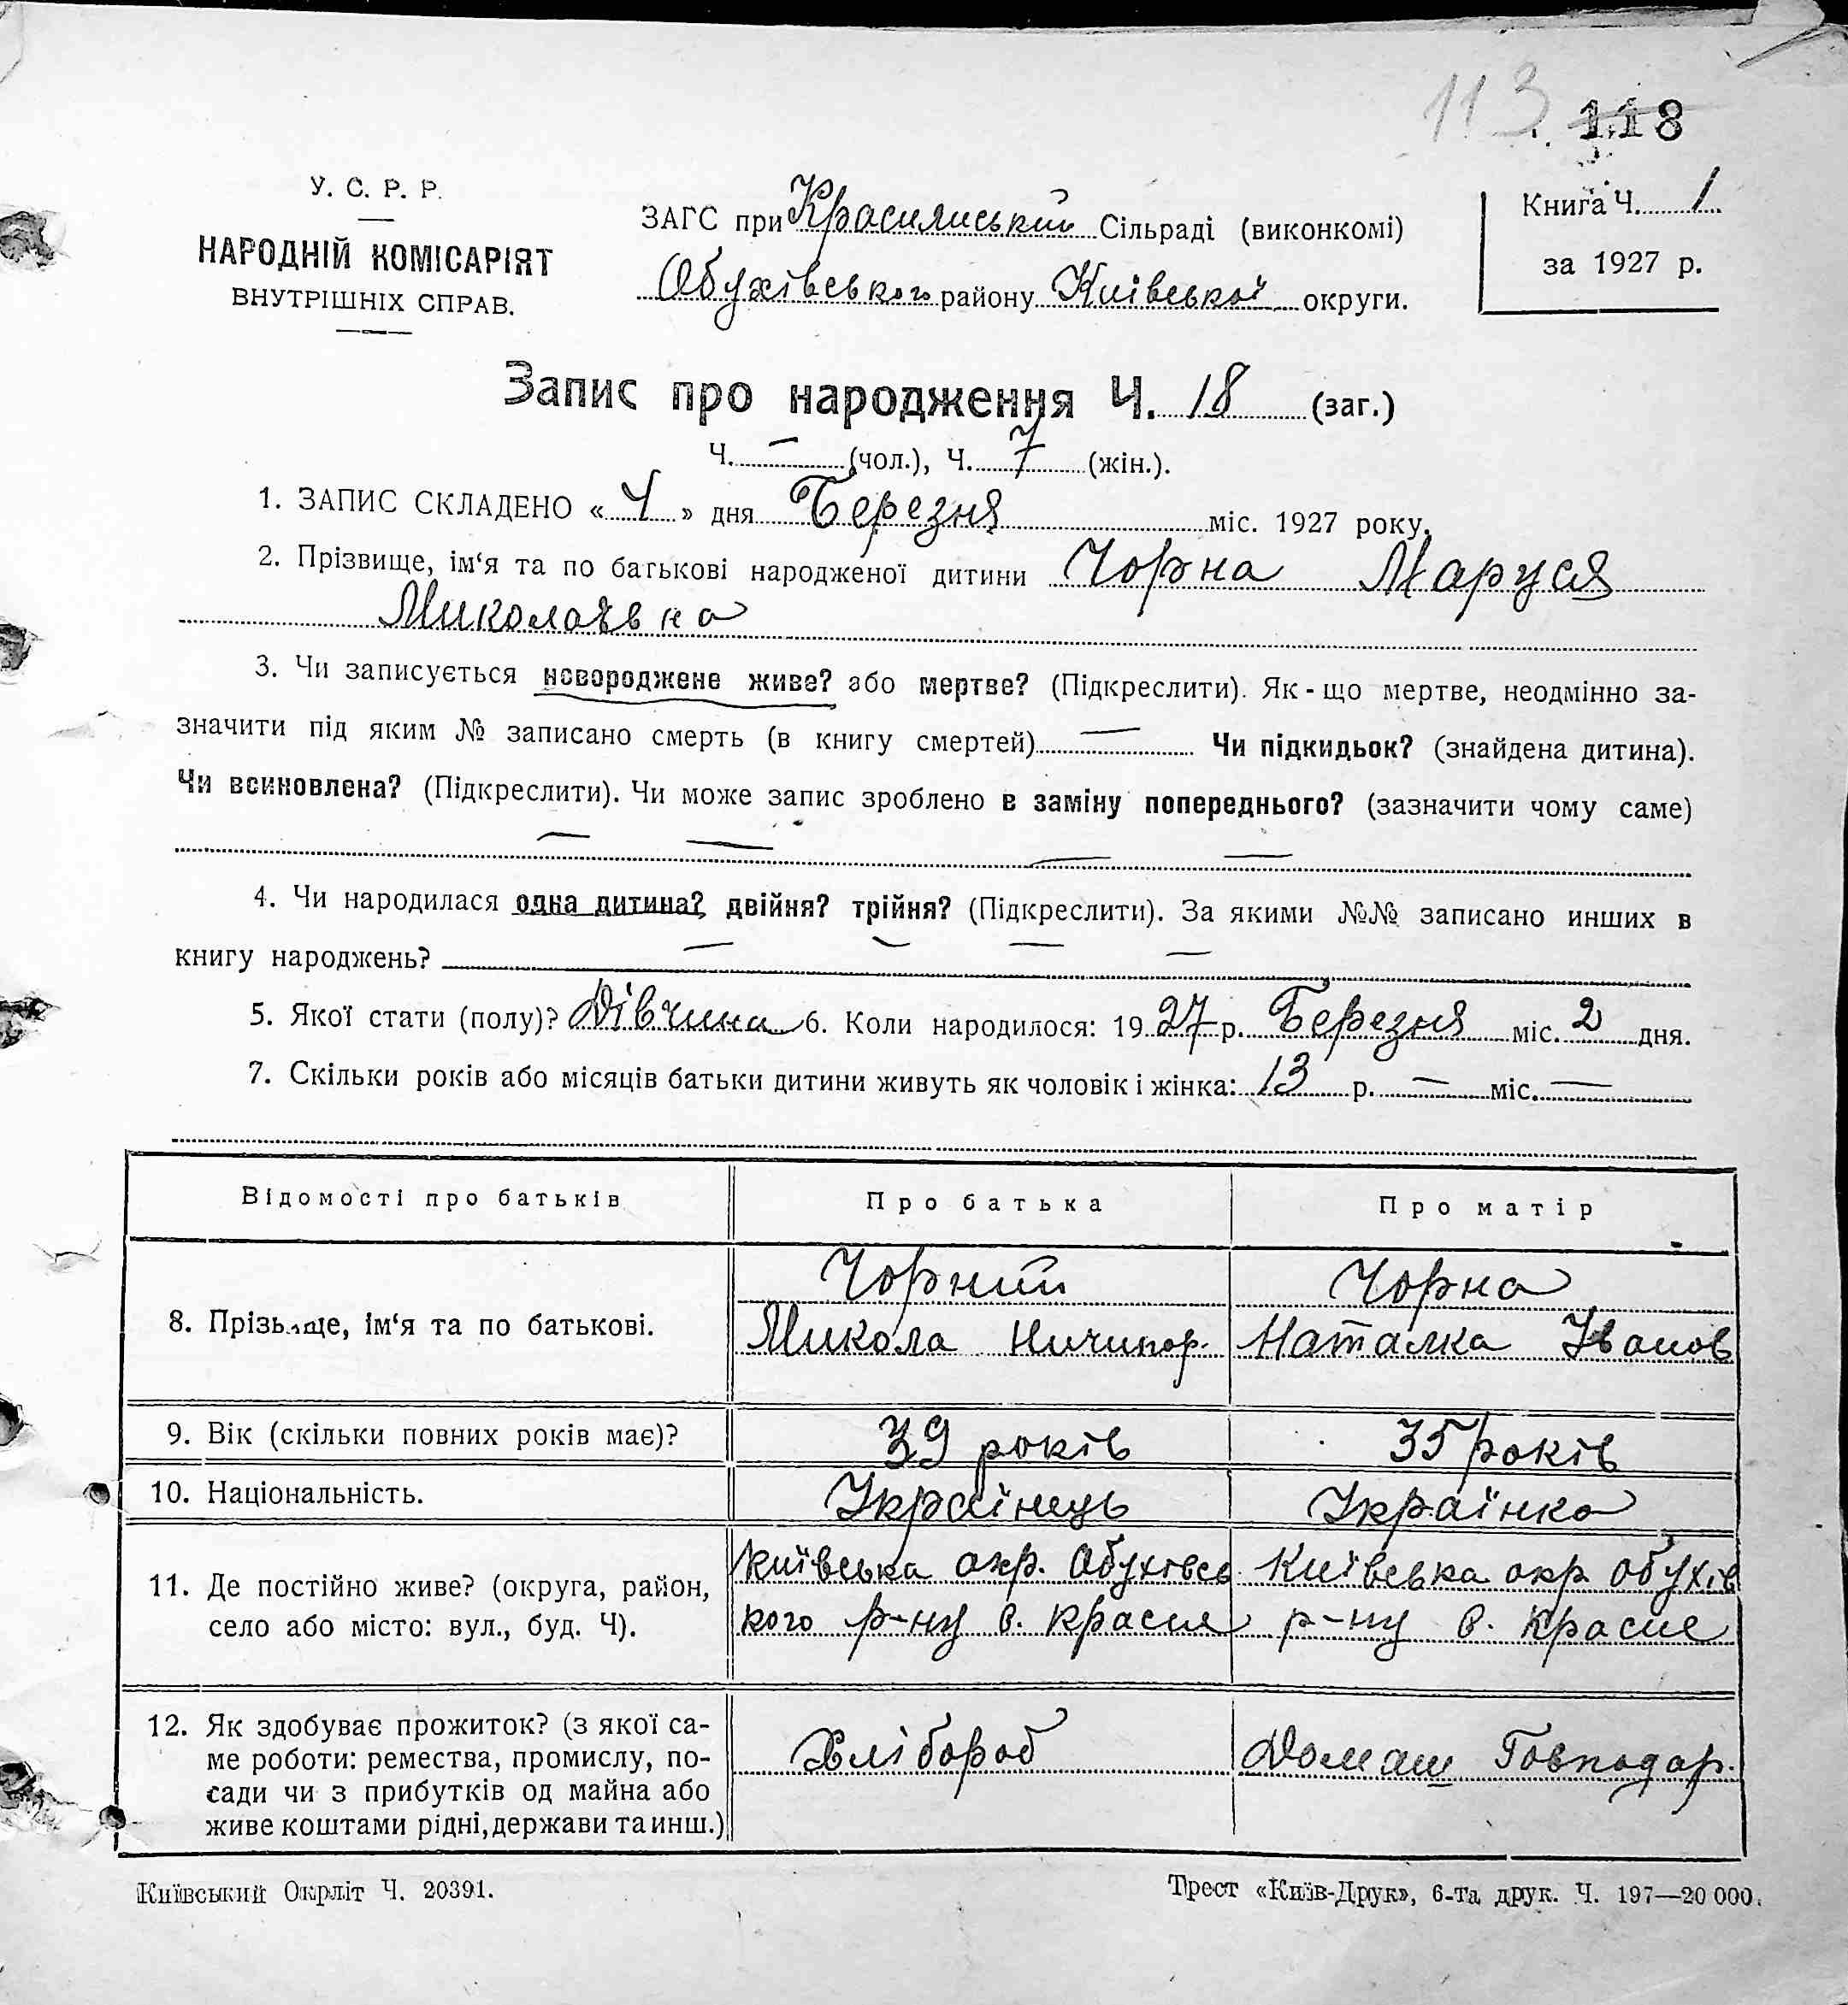 113 118
У. С. Р. Р.
НАРОДНІЙ КОМІСАРІЯТ
ВНУТРІШНІХ СПРАВ.
ЗАГС при Красилиський Сільраді (виконкомі)
Обухівського району Київської округи.
Книга Ч. 1
за 1927 р.
Запис про народження Ч. 18 (заг.)
Ч. — (чол.), Ч. 7 (жін.).
1. ЗАПИС СКЛАДЕНО « 4 » дня Березня міс. 1927 року.
2. Прізвище, ім‘я та по батькові народженої дитини Чорна Маруся
Миколаївна
3. Чи записується новороджене живе? або мертве? (Підкреслити). Як-що мертве, неодмінно за-
значити під яким № записано смерть (в книгу смертей) — Чи підкидьок? (знайдена дитина).
Чи всиновлена? (Підкреслити). Чи може запис зроблено в заміну попереднього? (зазначити чому саме)
— — — —
4. Чи народилася одна дитина? двійня? трійня? (Підкреслити). За якими №№ записано инших в
книгу народжень? — — — —
5. Якої стати (полу)? Дівчина 6. Коли народилося: 1927 р. Березня міс. 2 дня.
7. Скільки років або місяців батьки дитини живуть як чоловік і жінка: 13 р. — міс. —
Відомості про батьків Про батька Про матір
8. Прізвище, ім‘я та по батькові.
Чорний
Микола Ничипор.
Чорна
Наталка Іванов
9. Вік (скільки повних років має)? 39 років 35 років
10. Національність. Українець Українка
11. Де постійно живе? (округа, район,
село або місто: вул., буд. Ч).
Київська окр. Обухівсь
кого р-ну с. Красил
Київська окр Обухів
р-ну с. Красил
12. Як здобуває прожиток? (з якої са-
ме роботи: ремества, промислу, по-
сади чи з прибутків од майна або
живе коштами рідні, держави та инш.)
Хлібороб
Домаш Господар.
Київський Окрліт Ч. 20391.
Трест «Київ-Друк», 6-та друк. Ч. 197—20 000.